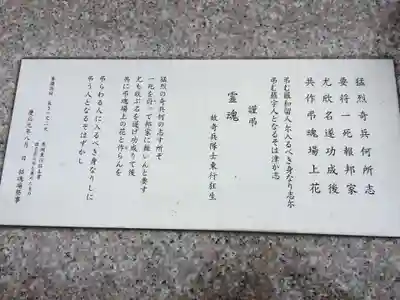 猛烈奇兵何所志
要将一死報邦家
尤欣名遂功成後
共作弔魂場上花
弔む羅和留人尓入るべき身なり志尓
弔む羅宇人となるそは津か志
謹弔
霊魂
故奇兵隊士東行狂生
猛烈の奇兵の志すす所ぞ
一死を将って邦家に報いんと要す
尤も欣ぶ名を遂げ功成りて後
共に弔魂場上の花と作らんを
弔らわる人に入るべき身なりしに
弔う人となるぞはずかし
慶応元年八月　日　招魂場祭事